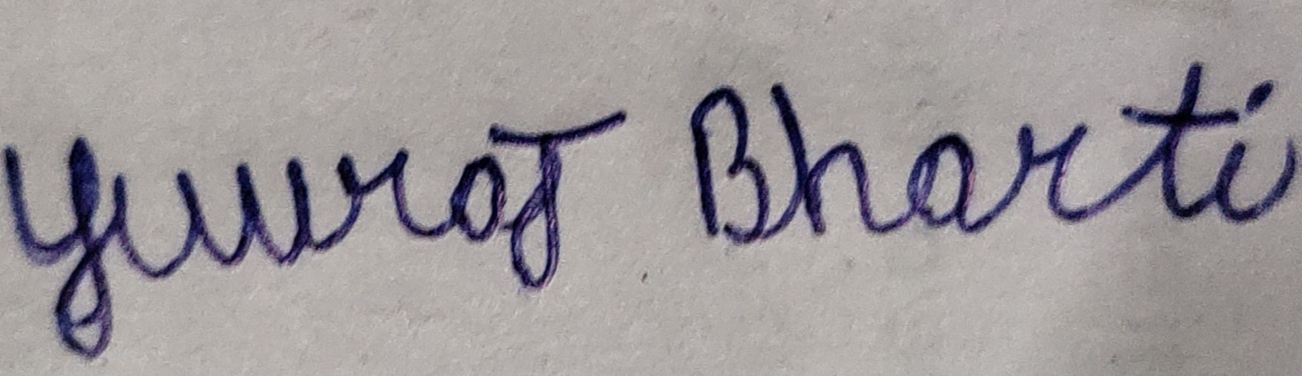 Yuvraj Bharti